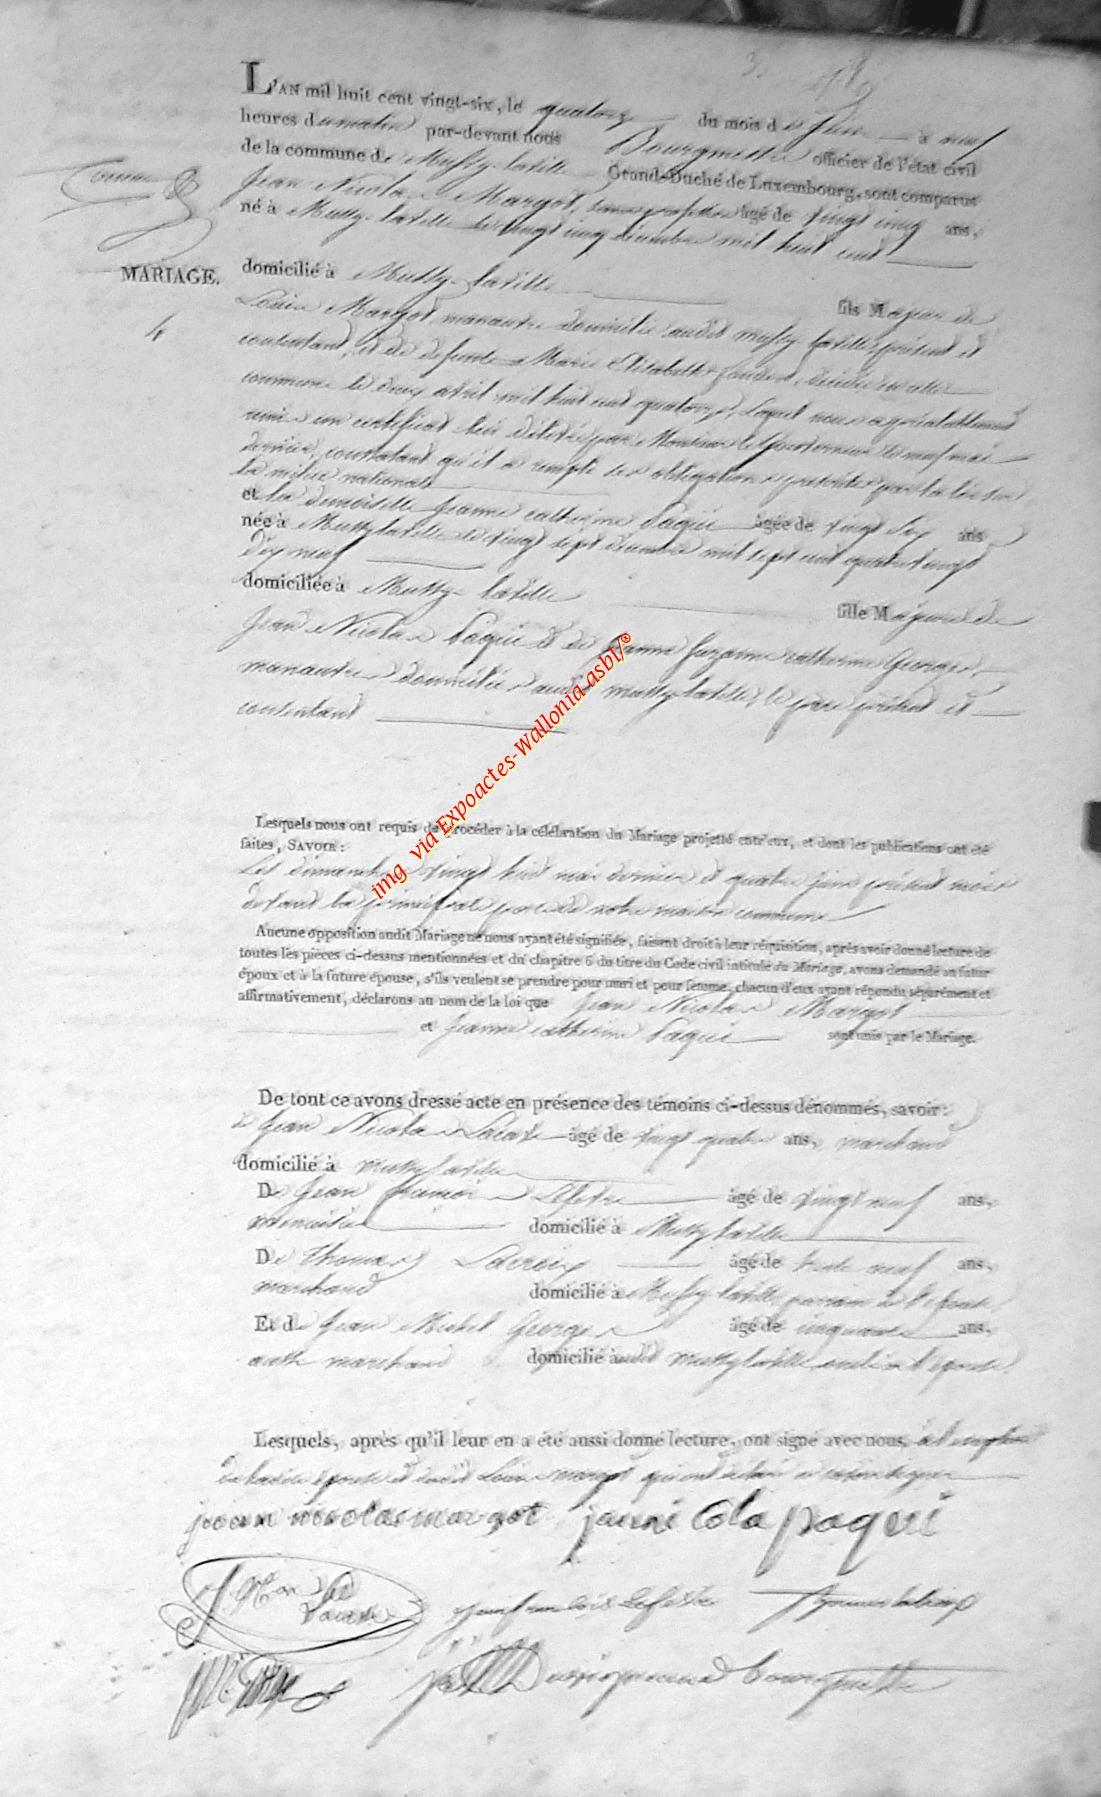 L'AN mil huit cent vingt-six, le quatorze du mois de Juin à neuf
heures du matin par-devant nous Bourgmestre officier de l'état civil
de la commune de Mussy-laville Grand-Duché de Luxembourg, sont comparus
Jean Nicolas Margot, sans profession âgé de vingt cinq ans,
né à Mussy-laville le vingt cinq décembre mil huit cent
MARIAGE.
4
domicilié à Mussy-laville fils Majeur de
Louis Margot manœuvre domicilié audit mussy laville, présent et
consentant, et de défunte Marie Elisabeth décédée en cette
commune le deux avril mil huit cent quatorze, lequel nous a préalablement
remis un certificat délivré par Monsieur le Gouverneur le neuf mai
dernier, constatant qu'il a rempli ses obligations prescrites par la loi sur
la milice nationale
et la demoiselle Jeanne catherine Paquie âgée de vingt six ans
née à Mussy laville le vingt sept décembre mil sept cent quatre vingt
dix neuf
domiciliée à Mussy-laville fille Majeure de
Jean Nicolas Paquie et de Jeanne Suzanne catherine Georges,
manœuvres domiciliés audit mussy laville, le père présent et
consentant
img via Expoactes-Wallonia asbl/®
Lesquels nous ont requis de procéder à la célébration du Mariage projetté entr'eux, et dont les publications ont été
faites, SAVOIR:
Les dimanches vingt huit mai dernier et quatre juin présent mois
devant la principale porte de notre maison commune
Aucune opposition audit Mariage ne nous ayant été signifiée, faisant droit à leur réquisition, après avoir donné lecture de
toutes les pièces ci-dessus mentionnées et du chapitre 6 du titre du Code civil intitulé du Mariage, avons demandé au futur
époux et à la future épouse, s'ils veulent se prendre pour mari et pour femme, chacun d'eux ayant répondu séparément et
affirmativement, déclarons au nom de la loi que Jean Nicolas Margot
et Jeanne catherine Paquie sont unis par le Mariage.
De tout ce avons dressé acte en présence des témoins ci-dessus dénommés, savoir:
De Jean Nicolas âgé de vingt quatre ans, marchand
domicilié à mussy laville
De Jean François Lefevre âgé de vingt neuf ans,
domicilié à Mussy laville
De Thomas Lacroix âgé de trente neuf ans,
marchand domicilié à Mussy laville parrain de l'épouse
Et de Jean Michel Georges âgé de cinquante ans,
marchand domicilié audit mussy laville oncle de l'épouse
Lesquels, après qu'il leur en a été aussi donné lecture, ont signé avec nous, à l'exception
Louis margot qui ont déclaré ne savoir signer
jean nicolas margot
paqui
jean francois Lefevre
bourgmestre